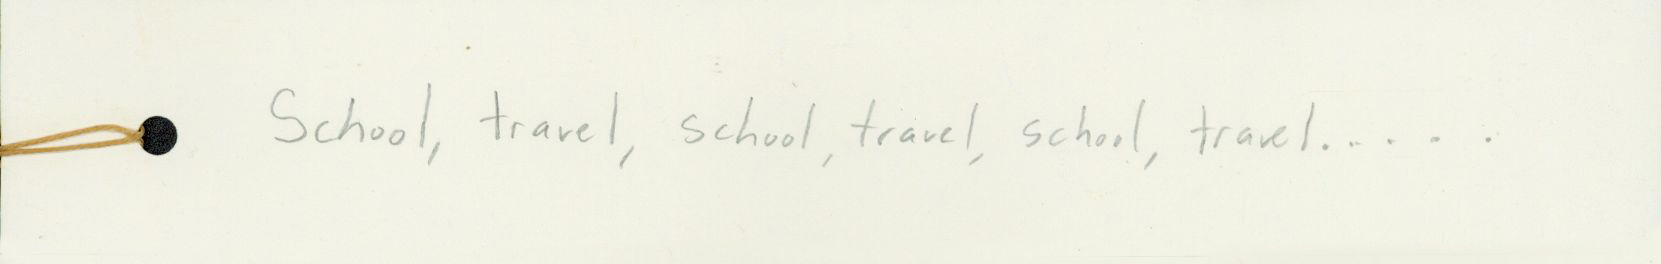 School, travel, school, travel, school, travel.....